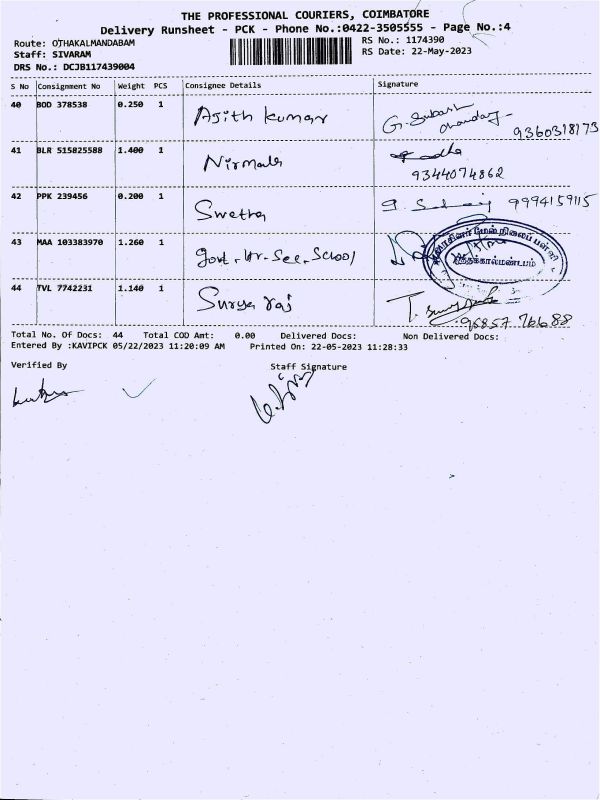 THE PROFESSIONAL COURIERS, COIMBATORE
Delivery Runsheet - PCK - Phone No.:0422-3505555 - Page No.:4
Route: OTHAKALMANDABAM
Staff: SIVARAM
DRS No.: DCJB117439004
RS No.: 1174390
RS Date: 22-May-2023
S No Consignment No Weight PCS Consignee Details Signature
40 BOD 378538 0.250 1 Ajith kumar G. Subash 9360318173
41 BLR 515825588 1.400 1 Nirmala 9344074862
42 PPK 239456 0.200 1 Swetha 9994159115
43 MAA 103383970 1.260 1 Govt. Hr. Sec. School
மேல்நிலைப் பள்ளி
44 TVL 7742231 1.140 1 Surya raj 96857 76688
Total No. Of Docs: 44 Total COD Amt: 0.00 Delivered Docs: Non Delivered Docs:
Entered By :KAVIPCK 05/22/2023 11:20:09 AM Printed On: 22-05-2023 11:28:33
Verified By Staff Signature